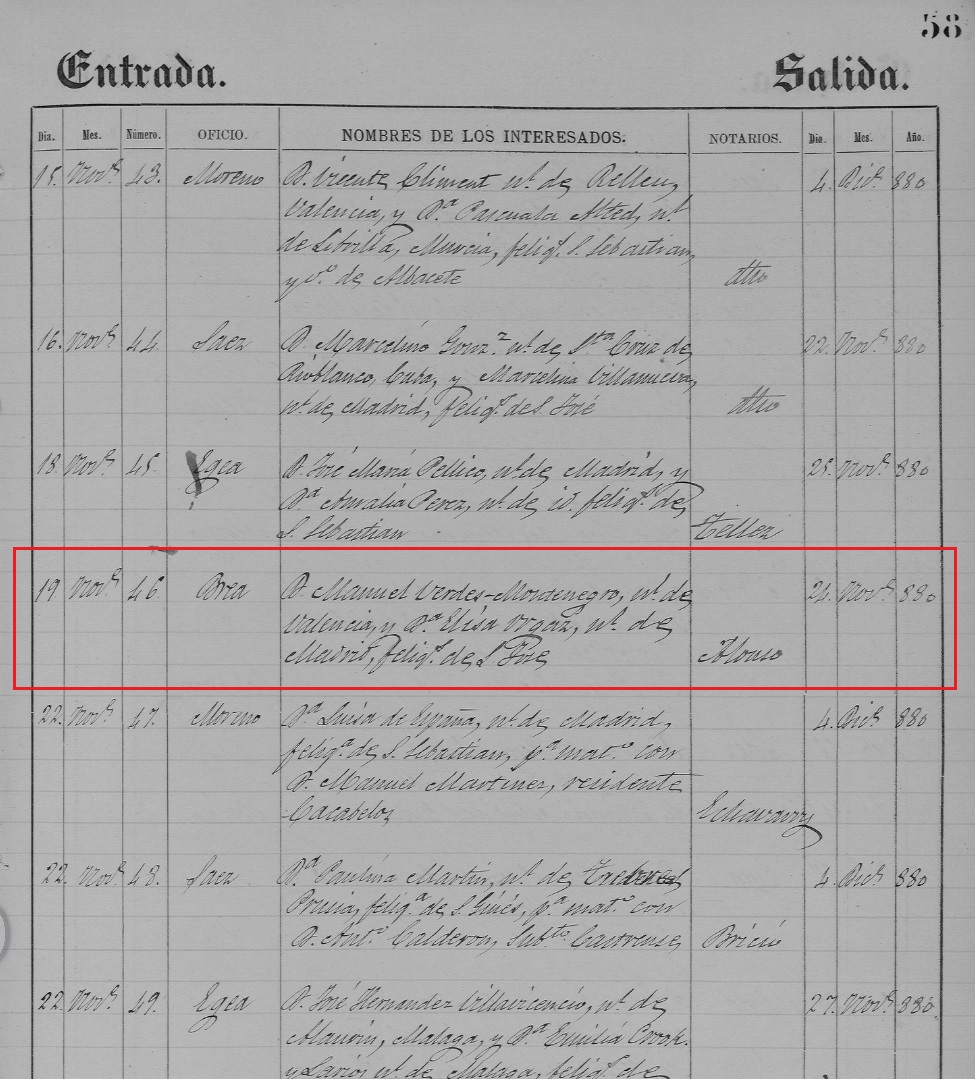 58
Entrada. Salida.
Dia. Mes. Número. OFICIO. NOMBRES DE LOS INTERESADOS. NOTARIOS. Dia. Mes. Año.
15. Novᵉ 43. Moreno D. Vicente Climent, nˡ de Relleu, 4. Dicᵉ 880
Valencia, y Dᵃ Pascuala Alted, nˡ
de Murcia, feligˢ S. Sebastian,
y vº de Albacete
16. Novᵉ 44. Saez D. Marcelino Gonzᶻ nˡ de Sᵗᵃ Cruz de 22. Novᵉ 880
Rioblanco, Cuba, y Marcelina Villanueva,
nˡ de Madrid, feligˢ de S. José
18. Novᵉ 45. Egea D. José María Pellico, nˡ de Madrid, y 25. Novᵉ 880
Dᵃ Amalia Perez, nˡ de id. feligˢ de
S. Sebastian Tellez
19 Novᵉ 46. Brea D. Manuel Verdes-Montenegro, nˡ de 24. Novᵉ 880
Valencia, y Dᵃ Elisa nˡ de
Madrid, feligˢ de S. José Alonso
22. Novᵉ 47. Moreno Dᵃ Luisa de España, nˡ de Madrid, 4. Dicᵉ 880
feligᵃ de S. Sebastian, pᵃ matº con
D. Manuel Martinez, residente
Cacabelos Echavarry
22. Novᵉ 48. Saez Dᵃ Paulina Martin, nˡ de 4. Dicᵉ 880
feligᵃ de S. Ginés, pᵃ matº con
D. Antº Calderon, Subᵗᵒ Castrense Bricio
22. Novᵉ 49. Egea D. José Hernandez Villavicencio, nˡ de 27. Novᵉ 880
Malaga, y Dᵃ Emilia Crook.
y Larios nˡ de Malaga, feligˢ de